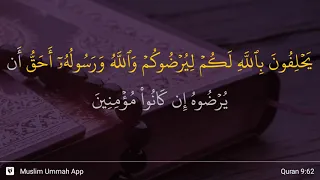 يَحْلِفُونَ بِٱللَّهِ لَكُمْ لِيُرْضُوكُمْ وَٱللَّهُ وَرَسُولُهُۥٓ أَحَقُّ أَن
يُرْضُوهُ إِن كَانُوا۟ مُؤْمِنِينَ
Muslim Ummah App
Quran 9:62